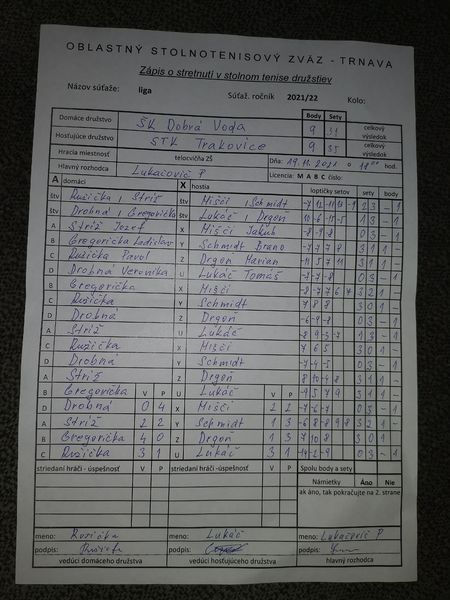 OBLASTNÝ STOLNOTENISOVÝ ZVÄZ - TRNAVA
Zápis o stretnutí v stolnom tenise družstiev
Názov súťaže: liga Súťaž. ročník 2021/22 Kolo:
Body Sety
Domáce družstvo ŠK Dobrá Voda 9 31 celkový výsledok
Hosťujúce družstvo STK Trakovice 9 35 celkový výsledok
Hracia miestnosť telocvičňa ZŠ Dňa: 19.11.2021 o 18 hod.
Hlavný rozhodca Lukačovič P Licencia: M A B C číslo:
A domáci X hostia loptičky setov sety body
štv Ružička, Stríž štv Hišči, Schmidt
štv Drobná, Gregorička štv Lukáč, Drgoň
A Stríž Jozef X Hišči Jakub -8 -9 -8 0 3 - 1
B Gregorička Ladislav Y Schmidt Brano -7 7 7 8 3 1 1 -
C Ružička Pavol Z Drgon Marian 3 1 1 -
D Drobná Veronika U Lukáč Tomáš -8 -7 -8 0 3 - 1
B Gregorička X Hišči -8 -7 7 6 7 3 2 1 -
C Ružička Y Schmidt 7 8 8 3 0 1 -
D Drobná Z Drgoň -6 -9 -8 0 3 - 1
A Stríž U Lukáč -8 9 -3 -7 1 3 - 1
C Ružička X Hišči 7 6 5 3 0 1 -
D Drobná Y Schmidt -7 -4 -5 0 3 - 1
A Stríž Z Drgoň 8 10 -4 8 3 1 1 -
B Gregorička V P U Lukáč V P -9 5 7 9 3 1 1 -
D Drobná 0 4 X Hišči 2 2 -7 -6 -7 0 3 - 1
A Stríž 2 2 Y Schmidt 1 3 -6 8 -8 9 8 3 2 1 -
B Gregorička 4 0 Z Drgoň 1 3 7 10 8 3 0 1
C Ružička 3 1 U Lukáč 3 1 -14 -2 -9 0 3 - 1
striedaní hráči - úspešnosť V P striedaní hráči - úspešnosť V P Spolu body a sety
Námietky Áno Nie
ak áno, tak pokračujte na 2. strane
meno: Ružička meno: Lukáč meno: Lukačovič P
podpis: podpis: podpis:
vedúci domáceho družstva vedúci hosťujúceho družstva hlavný rozhodca